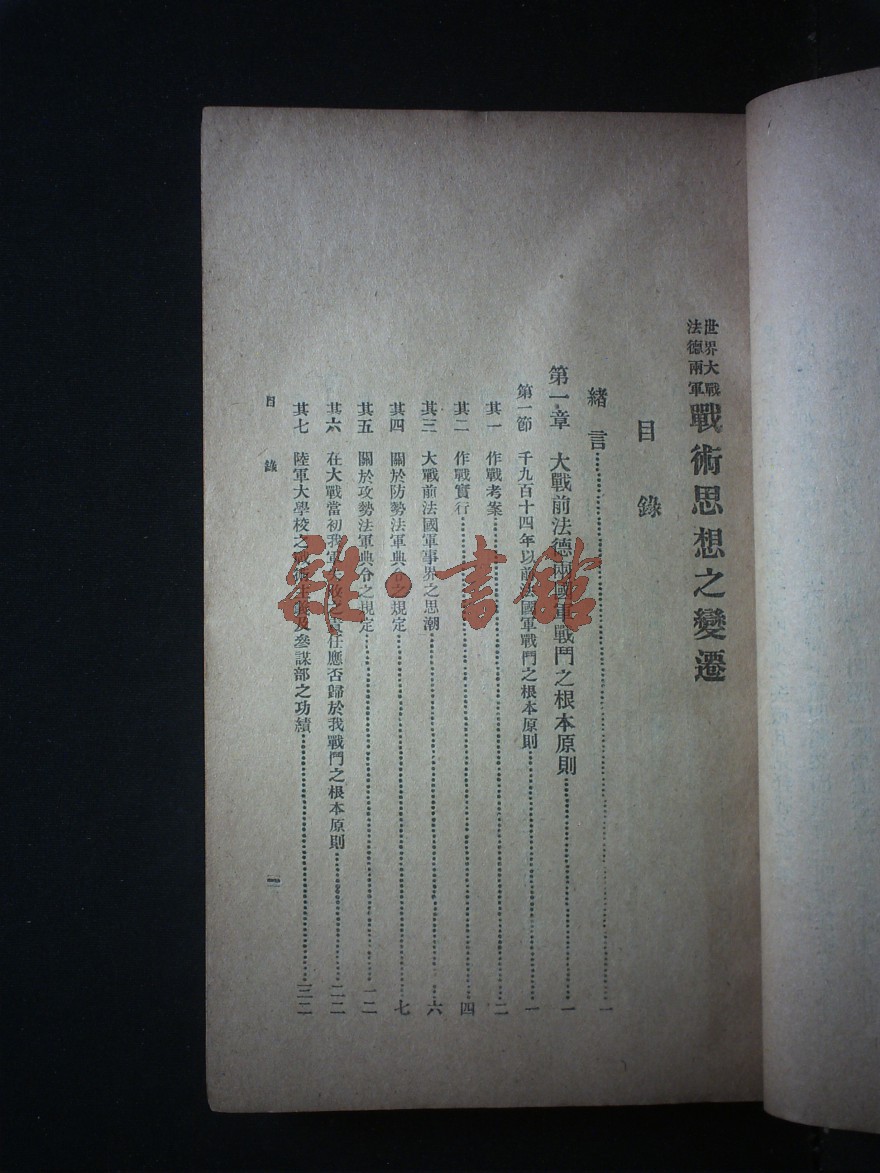 世界大戰
法德兩軍
戰術思想之變遷
目錄
緒言……一
第一章 大戰前法德兩國軍戰鬥之根本原則……一
第一節 千九百十四年以前法國軍戰鬥之根本原則……一
其一 作戰考案……二
其二 作戰實行……四
其三 大戰前法國軍事界之思潮……六
其四 關於防勢法軍典令之規定……七
其五 關於攻勢法軍典令之規定……一二
其六 在大戰當初我軍大敗之責任應否歸於我戰鬥之根本原則……二二
其七 陸軍大學校之戰術主義及參謀部之功績……三二
目錄
一
雜·書館